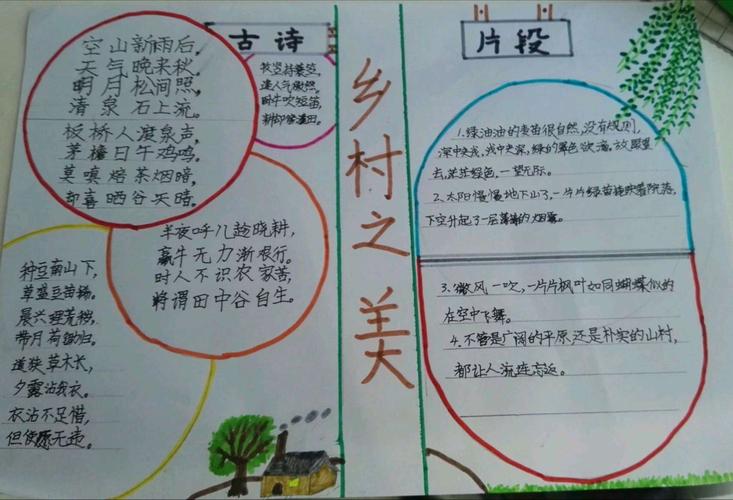 古诗
空山新雨后，
天气晚来秋。
明月松间照，
清泉石上流。
板桥人渡泉声，
茅檐日午鸡鸣。
莫嗔焙茶烟暗，
却喜晒谷天晴。
牧竖持蓑笠，
逢人气傲然。
卧牛吹短笛，
耕却傍溪田。
半夜呼儿趁晓耕，
羸牛无力渐艰行。
时人不识农家苦，
将谓田中谷自生。
种豆南山下，
草盛豆苗稀。
晨兴理荒秽，
带月荷锄归。
道狭草木长，
夕露沾我衣。
衣沾不足惜，
但使愿无违。
乡村之美
片段
1.绿油油的麦苗很自然，没有规则，
深中夹浅，浅中夹深，绿的翠色欲滴，放眼望
去，茫茫绿色，一望无际。
2、太阳慢慢地下山了，一片片绿苗
下空升起了一层薄薄的烟雾。
3.微风一吹，一片片枫叶如同蝴蝶似的
在空中飞舞。
4.不管是广阔的平原，还是朴实的山村，
都让人流连忘返。